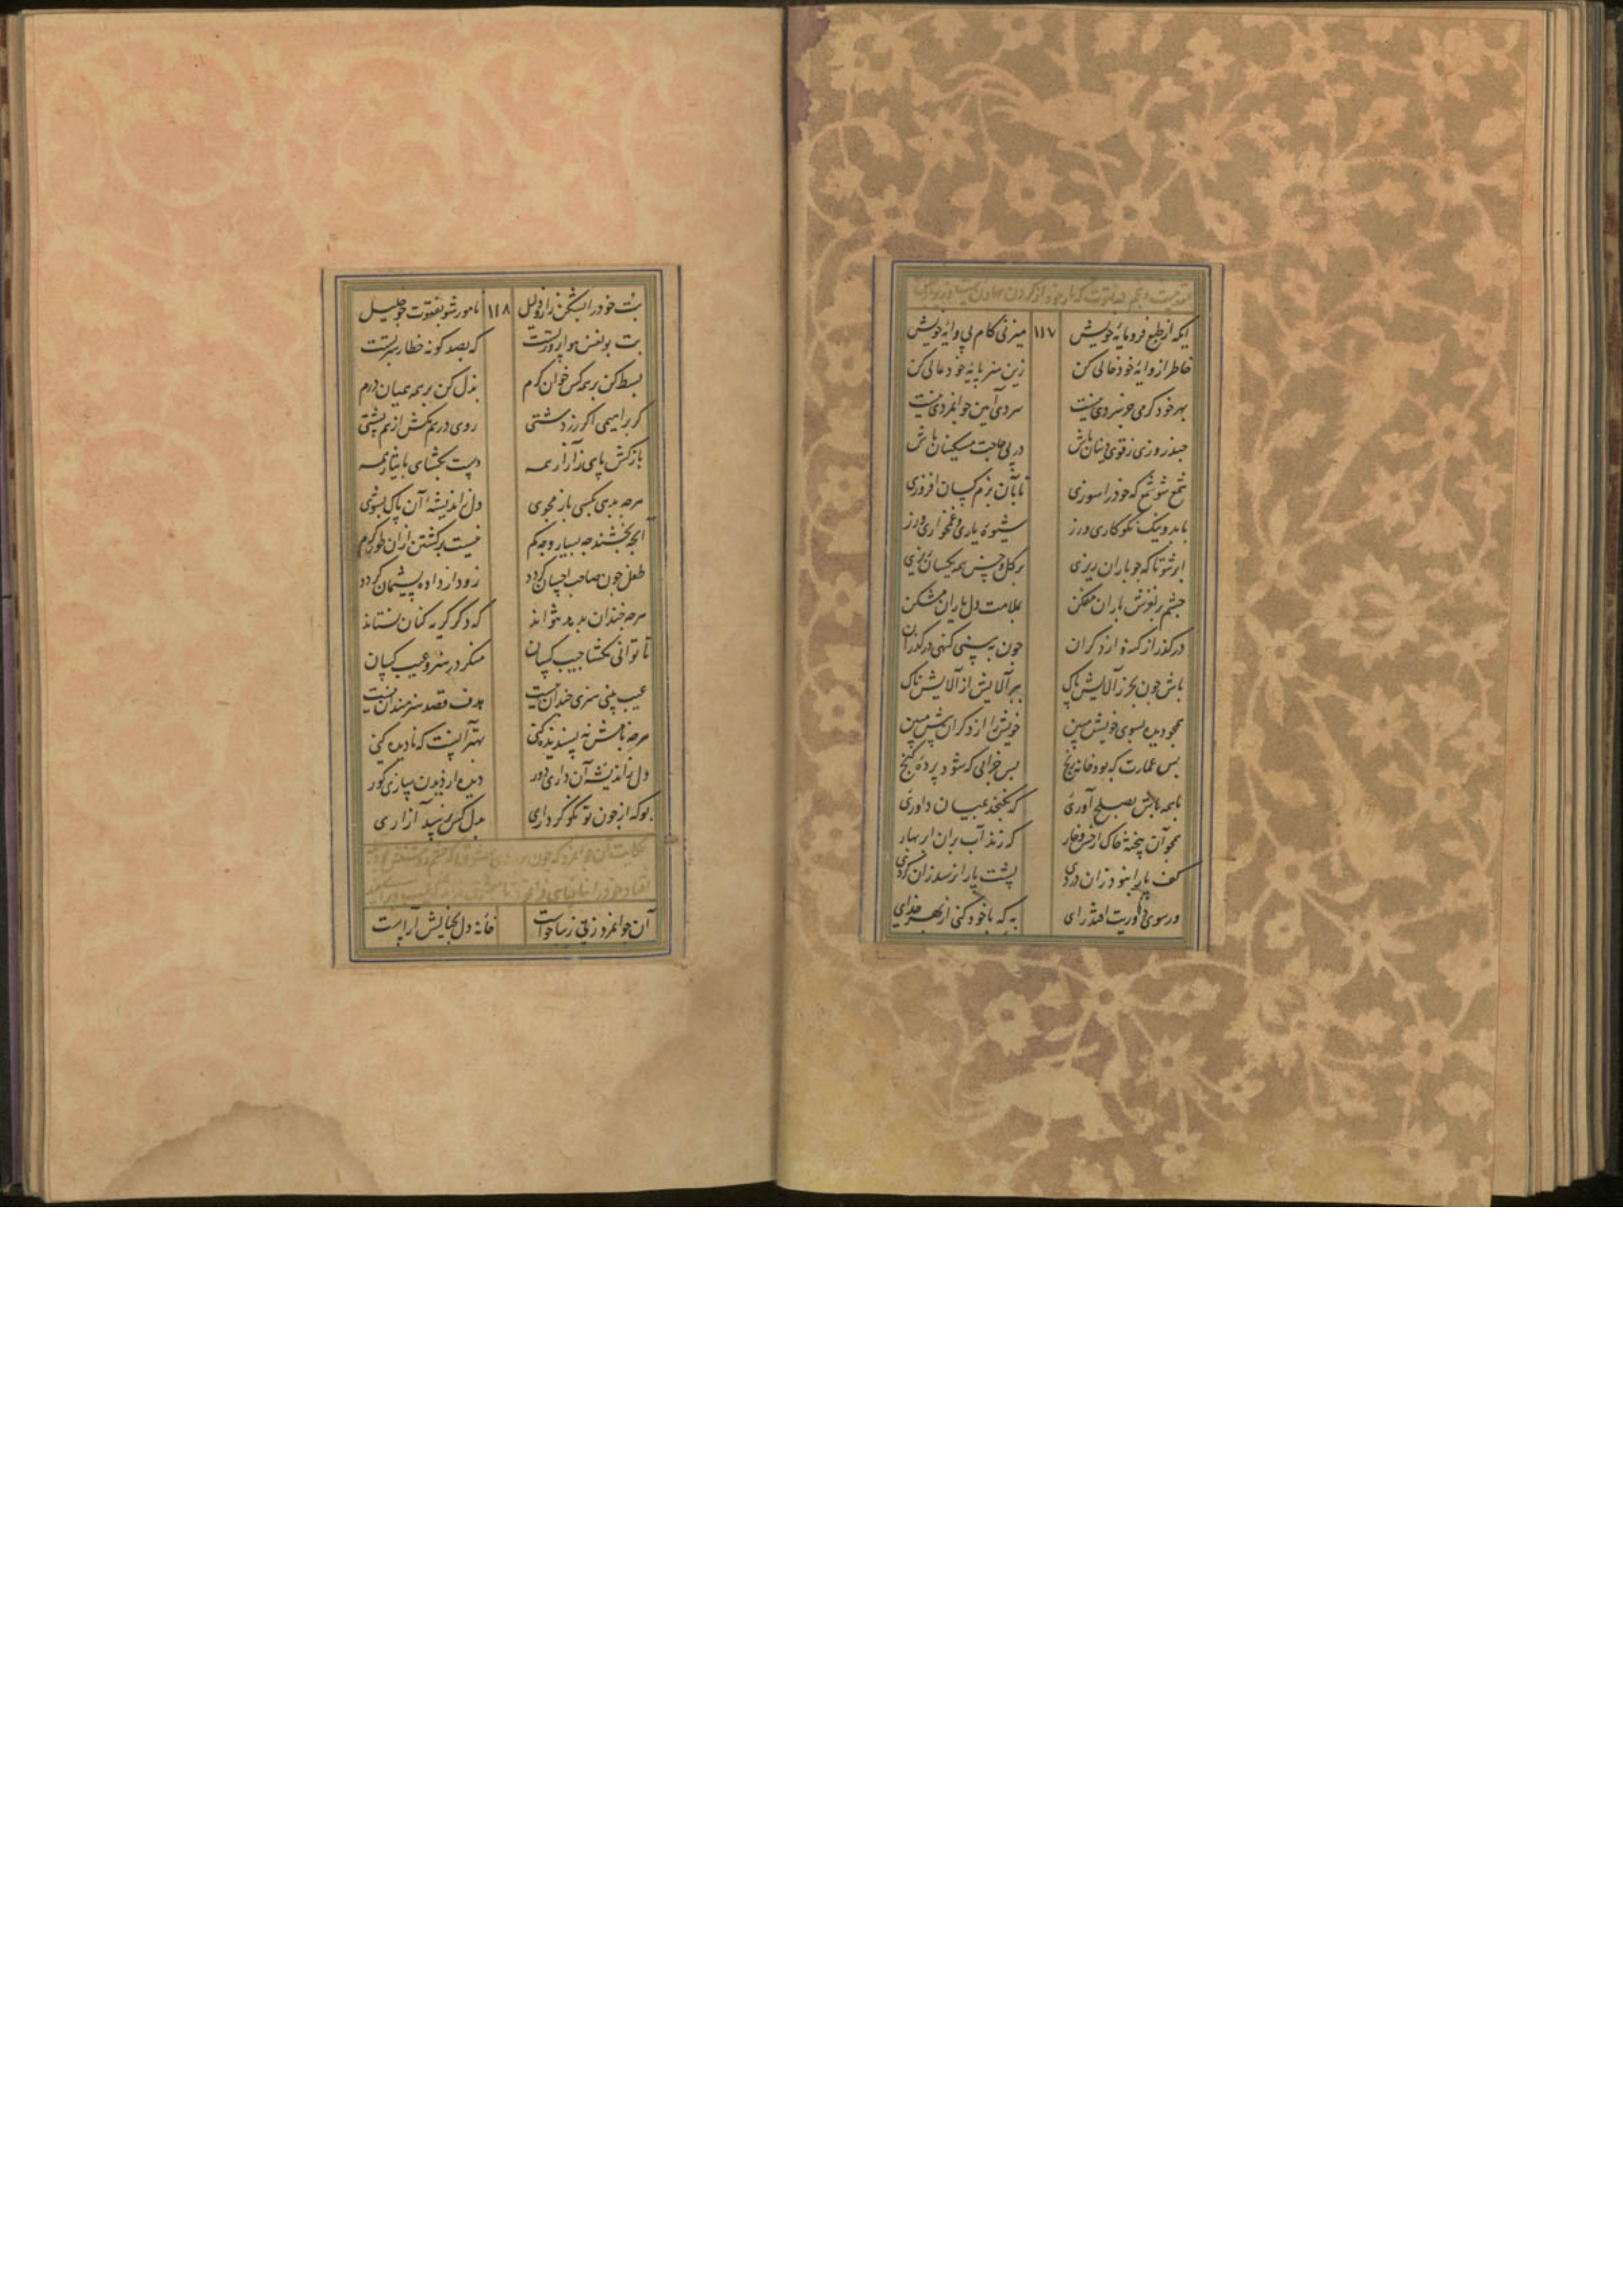 ایکه از طبع فرومایهٔ خویش ۱۱۷ میزنی کام پی وایهٔ خویش
خاطر از وایهٔ خود خالی کن زین هنر پایهٔ خود عالی کن
بهر خود کرمی جز سردی نیست سردی آیین جوانمردی نیست
جند روزی ز قوی دینان باش در پی حاجت مسکینان باش
شمع شو شمع که خود را سوزی تا بآن بزم کسان افروزی
با بد و نیک نکوکاری ورز شیوهٔ یاری و غمخواری ورز
ابر شو تا که جو باران ریزی بر کل و خس همه یکسان ریزی
جشم بر لغزش یاران مفکن بملامت دل یاران مشکن
در کذر از کنه از دکران جون به بینی کنهی در کذران
باش جون بحر ز آلایش پاک ببر آلایش از آلایش ناک
همجو دیده بسوی خویش مبین خویش را از دکران پیش مبین
بس عمارت که بود خانهٔ رنج بس خرابی که شود پردهٔ کنج
با همه باش بصلح آوری که نکنجد بمیان داوری
همجو آن پختهٔ خاک از خس و خار که زند آب بران ابر بهار
کف پا را نبود زان دردی پشت پا را نرسد زان کردی
ور سوی داوریت افتد رای به که با خود کنی از بهر خدای
بت خود را بشکن زار و ذلیل ۱۱۸ نامور شو بفتوت جو خلیل
بت تو نفس هوا پرورتست که بصد کونه خطا رهبر تست
بسط کن بر همه کس خوان کرم بذل کن بر همه همیان درم
کر براهیمی اکر زردشتی روی در هم مکش از هم پشتی
باز کش پای ز آزار همه دست بکشای بایثار همه
هرجه بدهی بکسی باز مجوی دل ز اندیشهٔ آن پاک بشوی
آنجه بخشند جه بسیار و جه کم نیست برکشتن ازان طور کرم
طفل جون صاحب احسان کردد زود از داده پشیمان کردد
هرجه خندان بدهد نتواند که دکر کریه کنان نستاند
تا توانی مکشا جیب کسان منکر در هنر و عیب کسان
عیب بینی هنری جندان نیست هدف قصد هنرمندان نیست
هرجه نامش نه پسندیده کنی بهتر آنست که نادیده کنی
دل ز اندیشهٔ آن داری دور دیده از دیدن سازی کور
بو که از جون تو نکو کرداری بدل کس نرسد آزاری
آن جوانمرد زنی زیبا خواست خانهٔ دل بخیالش آراست